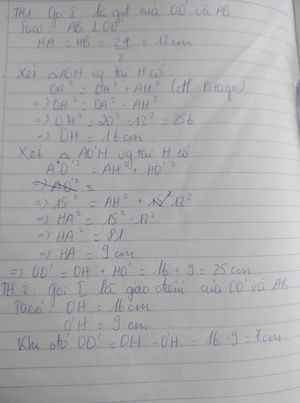 TH1: Gọi I là gđ của OO' và AB
Ta có: AB ⊥ OO'
HA = HB = 24/2 = 12 cm
Xét △AOH vg tại H có
OA² = OH² + AH² (Đl Pitago)
=> OH² = OA² - AH²
=> OH² = 20² - 12² = 256
=> OH = 16 cm
Xét △ AO'H vg tại H có
AO'² = AH² + HO'²
=> AO'² =
=> 15² = AH² + 12²
=> HA² = 15² - 12²
=> HA² = 81
=> HA = 9 cm
=> OO' = OH + HO' = 16 + 9 = 25 cm
TH2: gọi I là giao điểm của OO' và AB
Ta có: OH = 16 cm
O'H = 9 cm
Khi đó OO' = OH - O'H = 16 - 9 = 7 cm